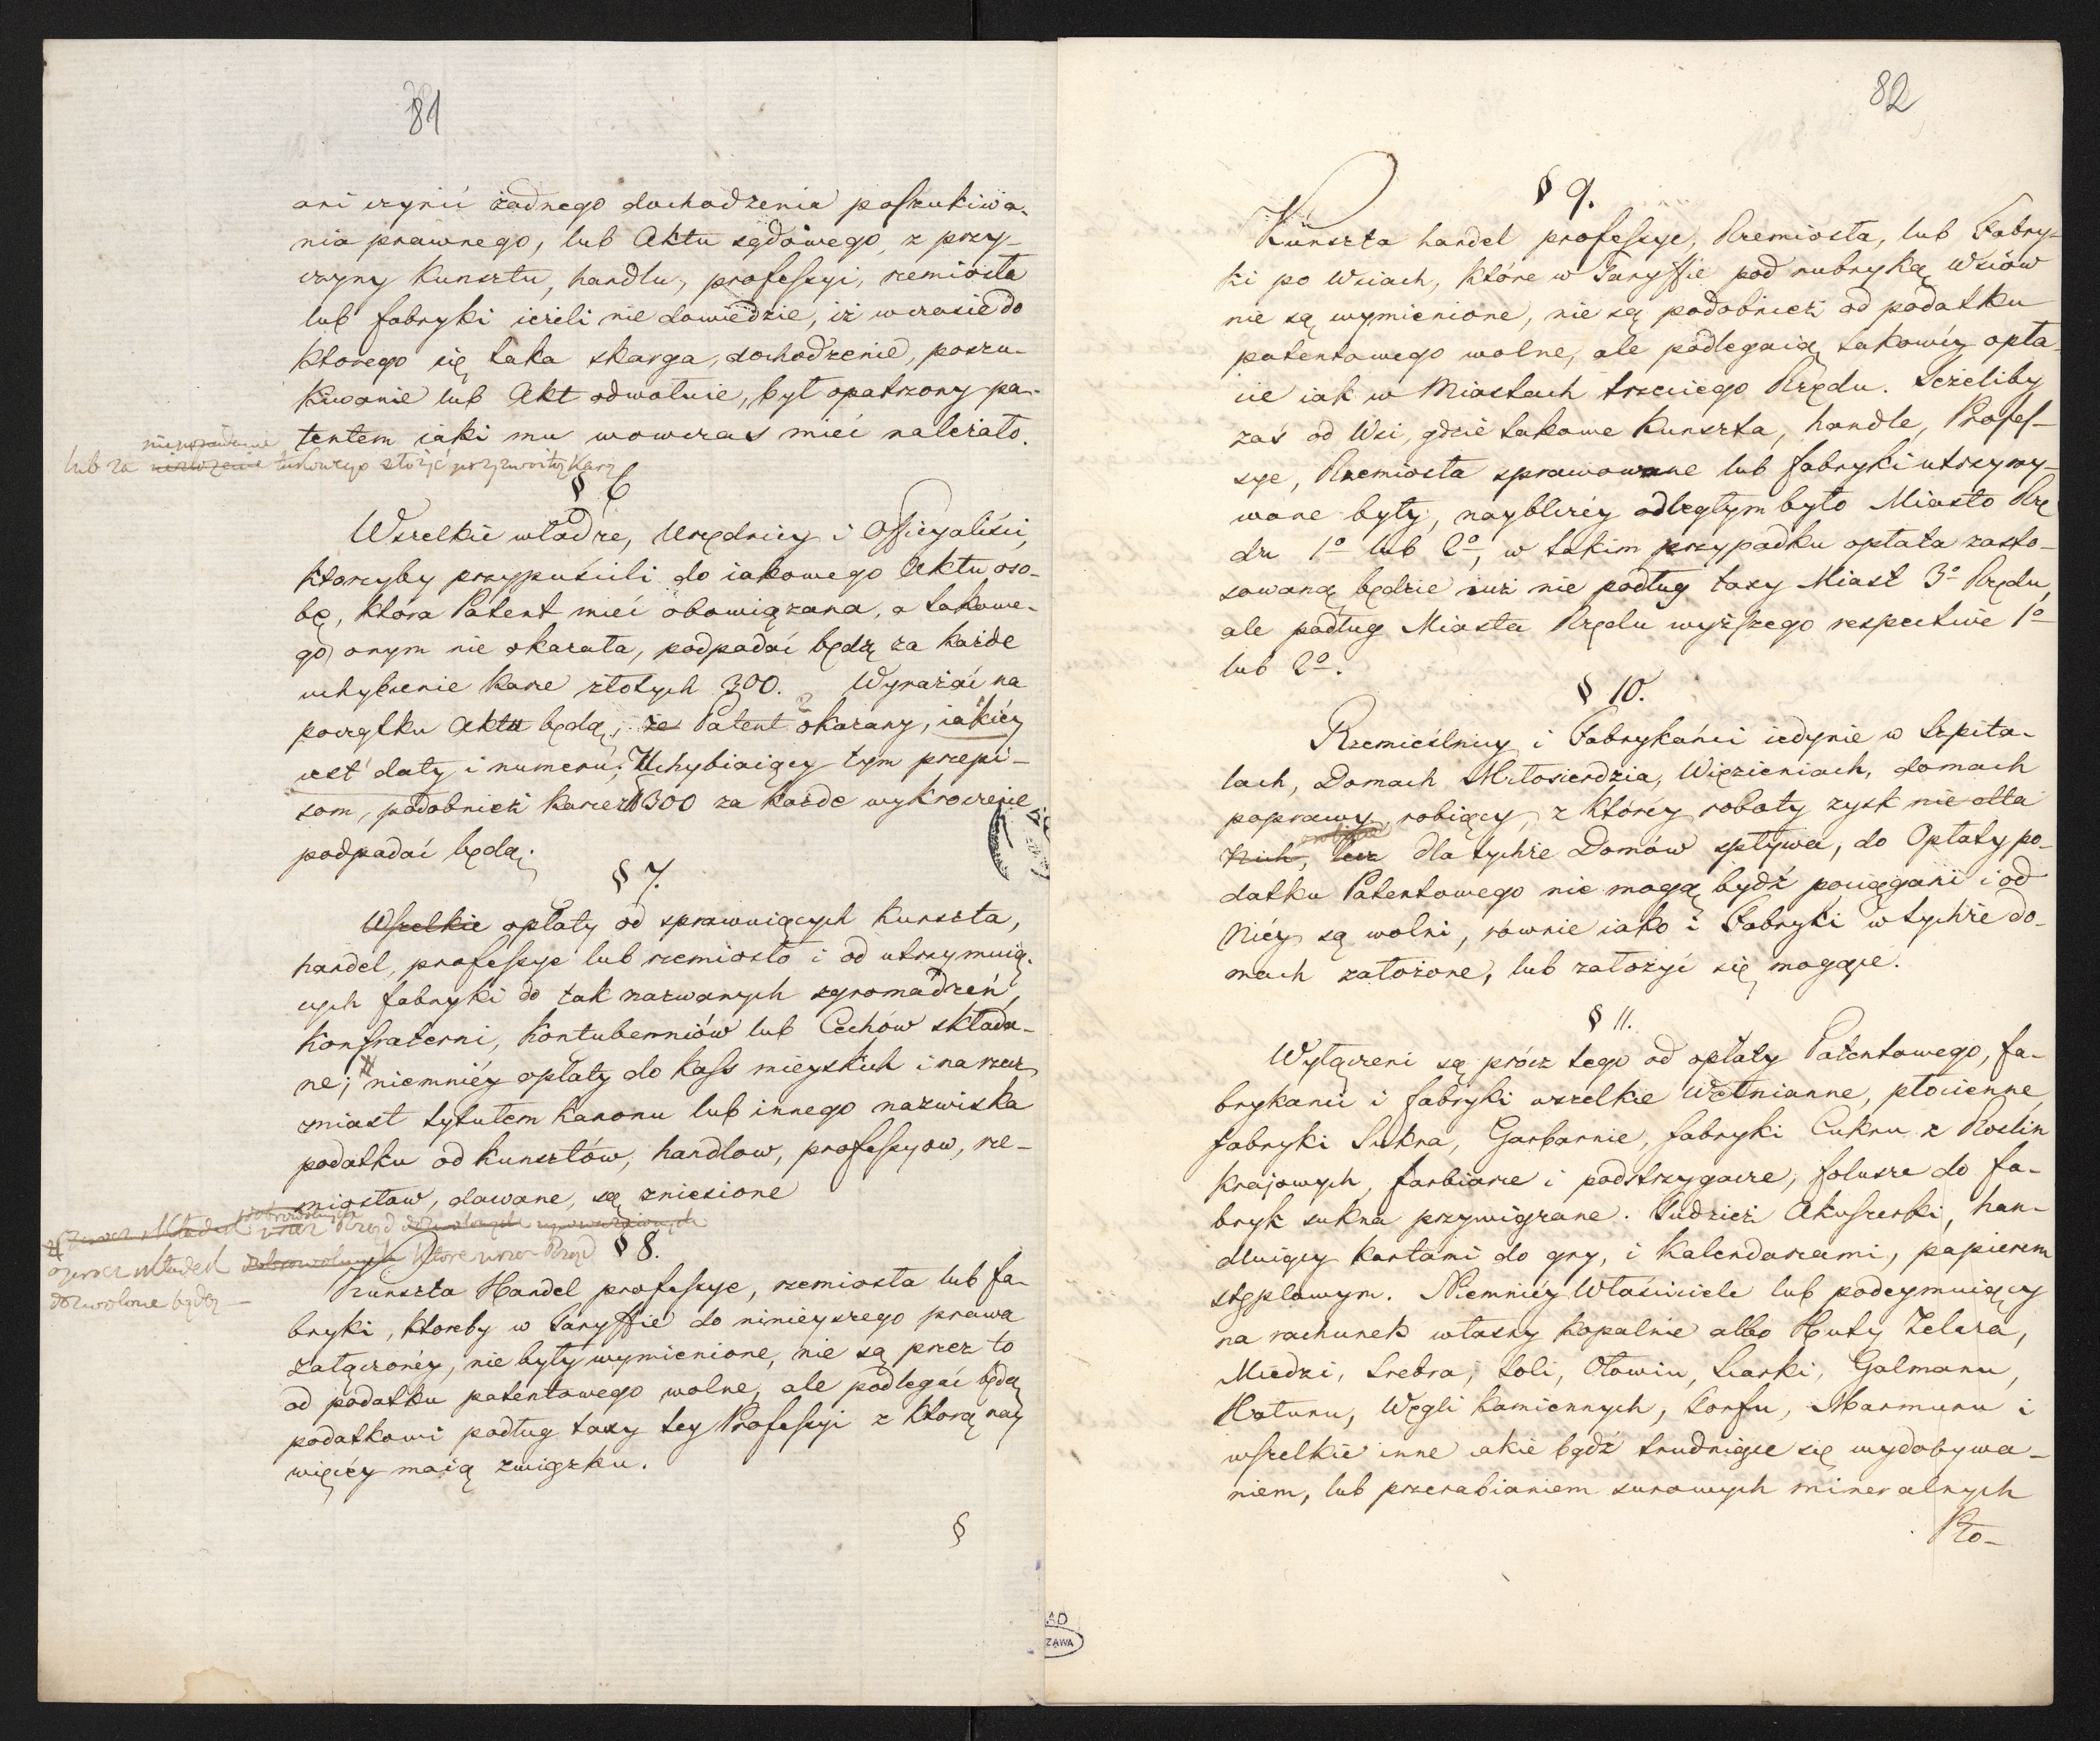 81
ani czynić żadnego dochodzenia poszukiwa-
nia prawnego, lub Aktu sądowego, z przy-
czyny Kunsztu, handlu, professyi, rzemiosła
lub fabryki ieżeli nie dowiedzie, iż w czasie do
ktorego się taka skarga, dochodzenie, poszu-
kiwanie lub Akt odwołuie, był opatrzony pa-
tentem iaki mu wowczas mieć należało.
lub za takowego złożyć przyzwoitą karę
§ 6
Wszelkie władze, Urzędnicy i Officyaliści,
ktorzyby przypuścili do iakowego Aktu oso-
bę, ktora Patent mieć obowiązana, a takowe-
go) onym nie okazała, podpadać będą za każde
uchybienie karze złotych 300. Wyrażać na
początku Aktu będą, że Patent okazany, iakiéy
iest daty i numeru; Uchybiaiący tym przepi-
som, podobnież karze zł 300 za każde wykroczenie
podpadać będą.
§ 7.
Wszelkie opłaty od sprawuiących Kunszta,
handel, professye lub rzemiosło i od utrzymuią-
cych fabryki do tak nazwanych zgromadzeń,
Konfraterni, Kontuberniów lub Cechów składa-
ne; niemniéy opłaty do kass mieyskich i na rzecz
miast tytułem kanonu lub innego nazwiska
podatku od kunsztów, handlow, professyow, rze-
miosław, dawane, są zniesione
oprocz składek dobrowolnych które przez Rząd
dozwolone będą
§ 8.
Kunszta Handel professye, rzemiosła lub fa-
bryki, ktoreby w Taryffie do ninieyszego prawa
załączonéy, nie były wymienione, nie są przez to
od podatku patentowego wolne, ale podlegać będą
podatkowi podług taxy tey Professyi z ktorą nay
więcéy maią związku.
§
82
§ 9.
Kunszta handel professye, Rzemiosła, lub Fabry-
ki po Wsiach, które w Taryffie pod rubryką Wsiów
nie są wymienione, nie są podobnież od podatku
patentowego wolne, ale podlegaią takowéy opła-
cie iak w Miastach trzeciego Rzędu. Jeżeliby
zaś od Wsi, gdzie takowe Kunszta, handle, Profes-
sye, Rzemiosła sprawowane lub fabryki utrzymy-
wane były, naybliżéy odległym było Miasto Rzę
du 1º lub 2º, w takim przypadku opłata zasto-
sowaną będzie iuż nie podług taxy Miast 3º Rzędu,
ale podług Miasta Rzędu wyższego respective 1º
lub 2º.
§ 10.
Rzemieślnicy i Fabrykańci iedynie w Szpita-
lach, Domach Miłosierdzia, Więzieniach, domach
poprawy, robiący, z któréy roboty zysk nie dla
nich, lecz dla tychże Domów spływa, do Opłaty po-
datku Patentowego nie mogą bydź pociągani i od
Niéy są wolni, równie iako i Fabryki w tychże do-
mach założone, lub założyć się mogące.
§ 11.
Wyłączeni są prócz tego od opłaty Patentowego, fa-
brykanci i fabryki wszelkie Wełnianne, płocienne,
fabryki Sukna, Garbarnie, fabryki Cukru z Roslin
krajowych, farbiarze i podstrzygacze, folusze do fa-
bryk sukna przywiązane. Tudzież Akuszerki, han-
dluiący kartami do gry, i Kalendarzami, papierem
stęplowym. Niemniéy Właściciele lub podeymuiący
na rachunek własny kopalnie albo Huty Żelaza,
Miedzi, Srebra, Soli, Ołowiu, Siarki, Galmanu,
Hałunu, Węgli kamiennych, torfu, Marmuru i
wszelkie inne iakie bądź trudniące się wydobywa-
niem, lub przerabianiem surowych mineralnych
Pło-